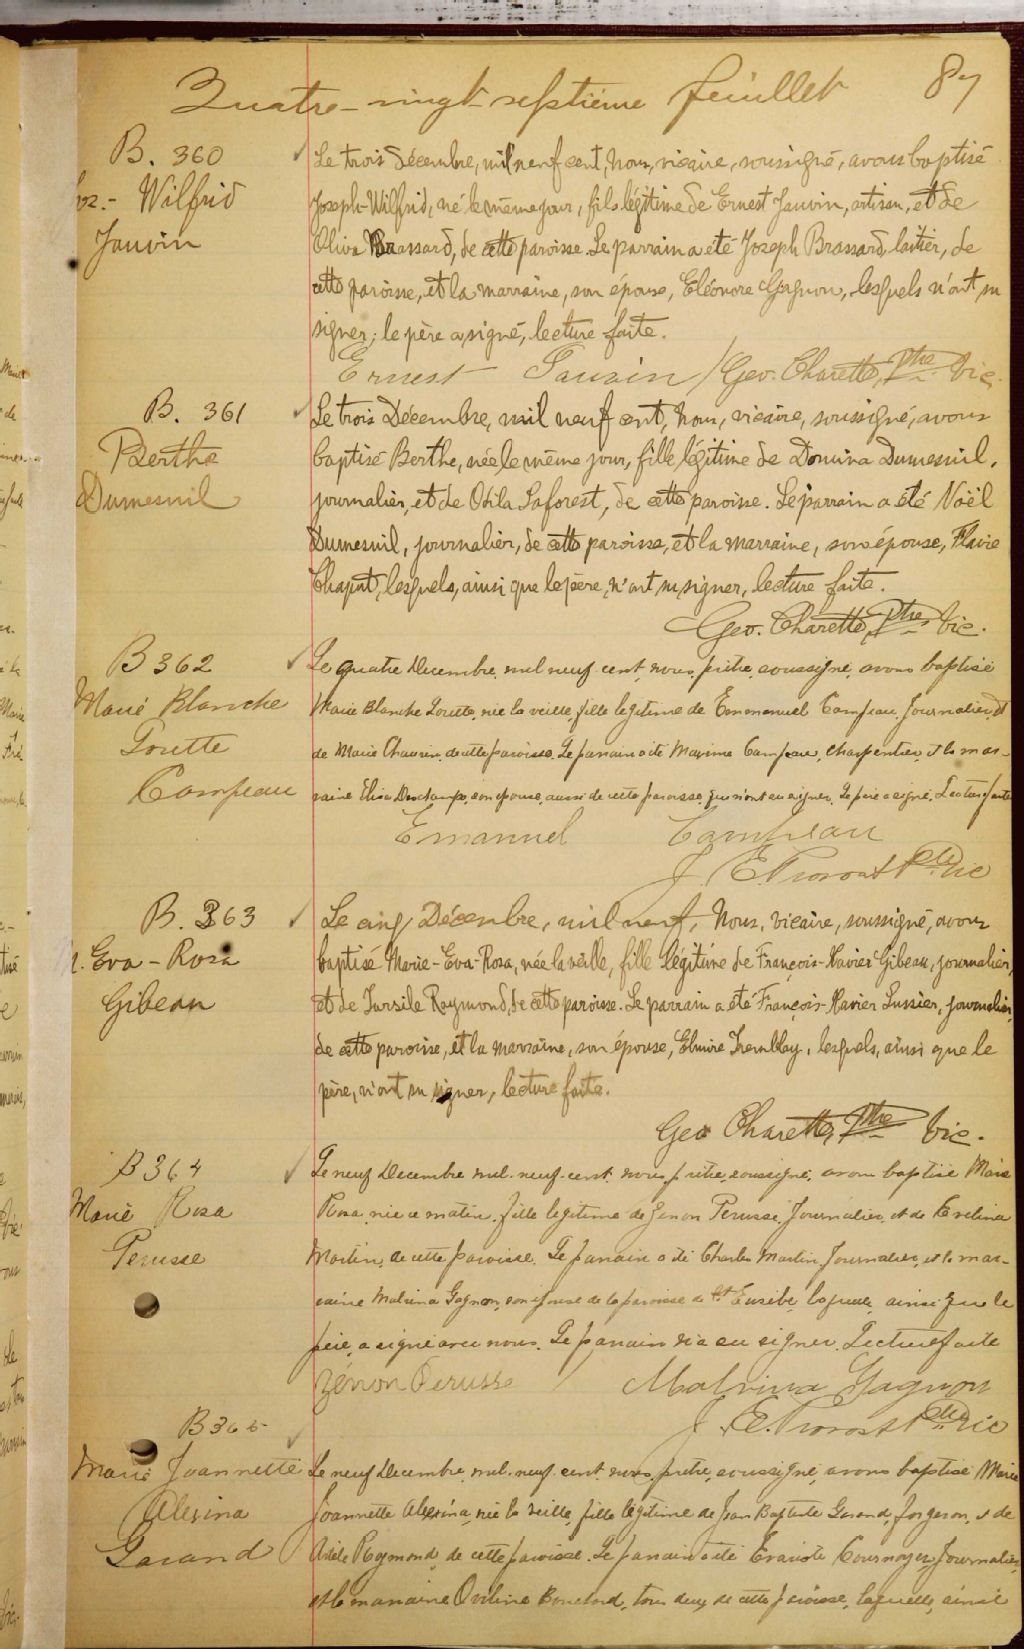 Quatre-vingt-septième feuillet 87
B. 360
Jos.- Wilfrid
Jauvin
Le trois Décembre, mil neuf cent, Nous, vicaire, soussigné, avons baptisé
Joseph-Wilfrid, né le même jour, fils légitime de Ernest Jauvin, artisan, et de
Oliva Brassard, de cette paroisse. Le parrain a été Joseph Brassard, laitier, de
cette paroisse, et la marraine, son épouse, Eléonore Gagnon, lesquels n'ont su
signer; le père a signé, lecture faite.
Ernest Jauvin / Geo. Charette, Ptre Vic.
B. 361
Berthe
Dumesnil
Le trois Décembre, mil neuf cent, Nous, vicaire, soussigné, avons
baptisé Berthe, née le même jour, fille légitime de Domina Dumesnil,
journalier, et de Odila Laforest, de cette paroisse. Le parrain a été Noël
Dumesnil, journalier, de cette paroisse, et la marraine, son épouse, Flavie
Chaput, lesquels, ainsi que le père, n'ont su signer, lecture faite.
Geo. Charette, Ptre Vic.
B 362
Marie Blanche
Lorette
Campeau
Le quatre Decembre mil neuf cent, nous prêtre soussigné avons baptisé
Marie Blanche Lorette, née la veille, fille legitime de Emmanuel Campeau, Journalier, et
de Marie Chauvin, de cette paroisse. Le parrain a été Maxime Campeau, charpentier, et la mar-
raine Elisa Deschamps, son epouse, aussi de cette paroisse, qui n'ont su signer. Le père a signé. Lecture faite
Emanuel Campeau
J. E. Provost Ptre Vic
B. 363
M. Eva-Rosa
Gibeau
Le cinq Décembre, mil neuf, Nous, vicaire, soussigné, avons
baptisé Marie-Eva-Rosa, née la veille, fille légitime de François-Xavier Gibeau, journalier,
et de Tarsile Raymond, de cette paroisse. Le parrain a été François-Xavier Lussier, journalier,
de cette paroisse, et la marraine, son épouse, Elmire Tremblay, lesquels, ainsi que le
père, n'ont su signer, lecture faite.
Geo Charette, Ptre Vic.
B 364
Marie Rosa
Perusse
Le neuf Decembre mil-neuf-cent nous prêtre soussigné, avons baptisé Marie
Rosa, née ce matin, fille legitime de Zenon Perusse, Journalier, et de Evelina
Martin, de cette paroisse. Le parrain a été Charles Martin, Journalier, et la mar-
raine Malvina Gagnon, son epouse de la paroisse de St Eusèbe, laquelle ainsi que le
père a signé avec nous. Le parrain n'a su signer. Lecture faite
Zénon Perusse / Malvina Gagnon
J. E. Provost Ptre Vic
B 365
Marie Joannette
Alexina
Garand
Le neuf Decembre mil-neuf-cent nous, prêtre, soussigné, avons baptisé Marie
Joannette Alexina, née la veille, fille légitime de Jean Baptiste Garand, forgeron, et de
Adèle Raymond, de cette paroisse. Le parrain a été Evariste Cournoyer, Journalier,
et la marraine Oveline Bouchard, tous deux de cette paroisse, laquelle, ainsi